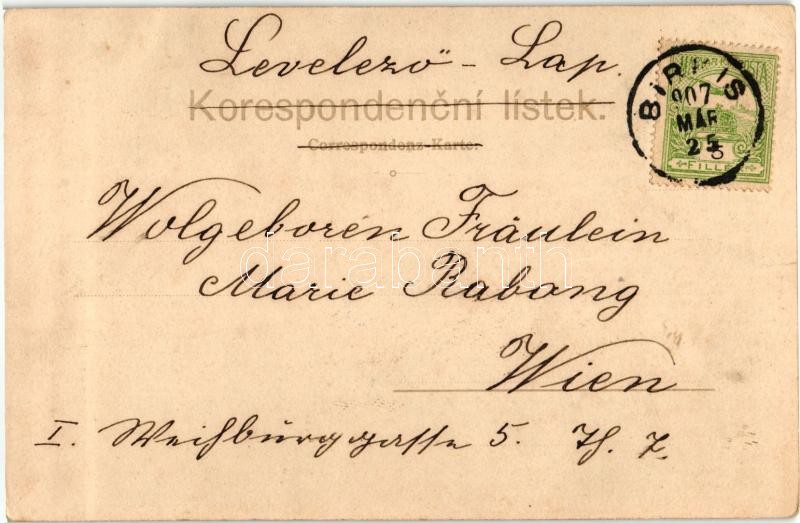 Levelező - Lap.
Korespondenční lístek.
Correspondenz-Karte.
BIRKIS
907
MAR
25
FILLÉR
Wolgeboren Fräulein
Marie Rabong
darabanth
Wien
I. Weihburggasse 5. Th. 7.